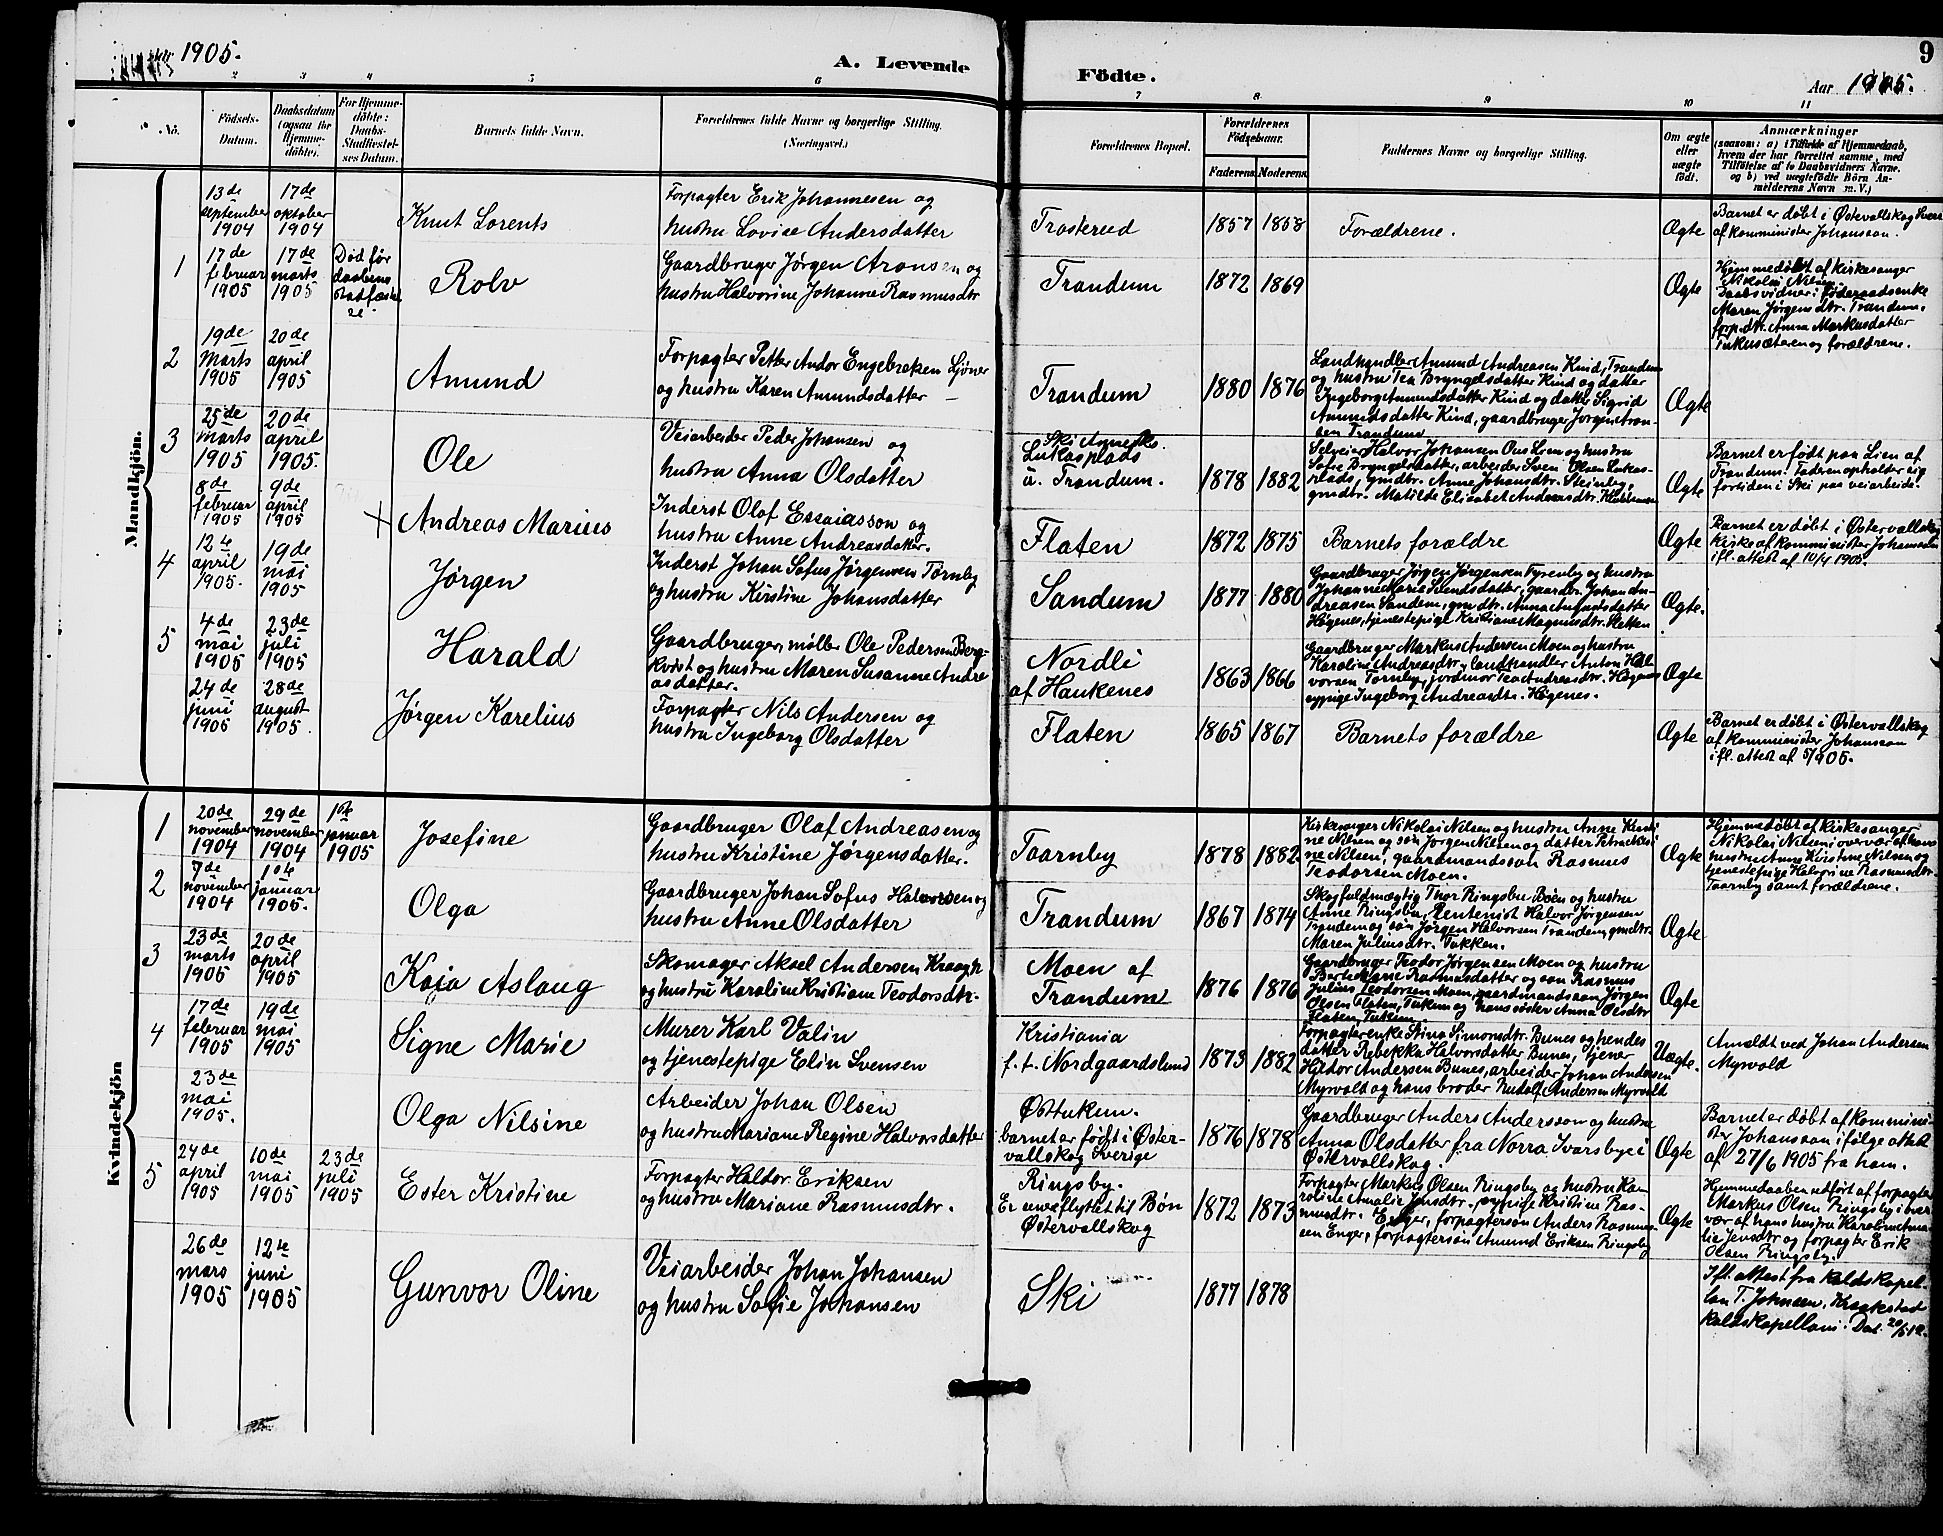 Aar 1905.
A. Levende Födte.
9
Aar 1905.
2 3 4 5 6 7 8 9 10 11
No.
Födsels-
Datum.
Daabsdatum
(ogsaa for
Hjemme-
döbte).
For Hjemme-
döbte:
Daabs-
Stadfæstel-
ses Datum.
Barnets fulde Navn.
Forældrenes fulde Navne og borgerlige Stilling.
(Næringsvei.)
Forældrenes Bopæl.
Forældrenes
Födselsaar.
Faderens
Moderens
Faddernes Navne og borgerlige Stilling.
Om ægte
eller
uægte
födt.
Anmærkninger
(saasom: a) i Tilfælde af Hjemmedaab,
hvem der har forrettet samme, med
Tilföielse af to Daabsvidners Navne.
og b) ved uægtefödte Börn An-
melderens Navn m. V.)
Mandkjön.
13de
september
1904
17de
oktober
1904
Knut Lorents
Forpagter Erik Johannesen og
hustru Lovise Andersdatter
Trosterud
1857 1858
Forældrene.
Ægte
Barnet er døbt i Østervallskog Sver
af kominister Johansson.
1
17de
februar
1905
17de
marts
1905
Død før
daabens
stadfæstel
se.
Rolv
Gaardbruger Jørgen Aronsen og
hustru Halvorine Johanne Rasmusdtr
Trandum
1872 1869
Ægte
Hjemmedøbt af kirkesanger
Nikolai Nilsen
Daabsvidner: føderaadsenke
Maren Jørgensdtr. Trandum.
forp.dtr. Anna Markusdatter
Tukusæteren og forældrene.
2
19de
Marts
1905
20de
april
1905
Amund
Forpagter Petter Andor Engebretsen Sjöner
og hustru Karen Amundsdatter —
Trandum
1880 1876
Landhandler Amund Andreasen Kind, Trandum
og hustru Tea Bryngelsdatter Kind og datter
Ingeborg Amundsdatter Kind og datter Sigrid
Amundsdatter Kind, gaardbruger Jørgen Aron-
sen Trandum
Ægte
3
25de
marts
1905
20de
april
1905.
Ole
Veiarbeider Peder Johansen og
hustru Anna Olsdatter
Ski Anneks.
Lukasplads
u. Trandum.
1878 1882
Selveier Halvor Johansen Ous Lien og hustru
Sofie Bryngelsdatter, arbeider Sven Olsen Lukas-
plads, gmdtr. Anne Johansdtr. Steinby,
gmdtr. Matilde Elisabet Andreasdtr.
Ægte
Barnet er født paa Lien af
Trandum. Faderen opholder sig
fortiden i Ski paa veiarbeide.
8de
februar
1905
9de
april
1905
Andreas Marius
Inderst Olof Essaiasson og
hustru Anne Andreasdatter.
Flaten
1872 1875
Barnets forældre
Ægte
Barnet er døbt i Østervallskog
Kirke af kominister Johansson
ifl. attest af 10/4 1905.
4
12te
april
1905.
19de
mai
1905
Jørgen
Inderst Johan Sofus Jørgensen Tørnby
og hustru Kirstine Johansdatter
Sandum
1877 1880
Gaardbruger Jørgen Jørgensen Tyrenby og hustru
Johanne Marie Svendsdatter, gaardbr. Johan An-
dreasen Sandem, gmdtr. Anna Augustsdatter
Høgenes, tjenestepige Kristiane Magnusdtr. Sletten
Ægte.
5
4de
mai
1905
23de
juli
1905
Harald
Gaardbruger, møller Ole Pedersen Berg-
kvist og hustru Maren Susanne Andre
asdatter.
Nordli
af Haukenes
1863 1866
Gaardbruger Markus Andersen Moen og hustru
Karoline Andreasdtr., landhandler Anton Hal-
vorsen Tørnby, jordmor Tea Andreasdtr. Høgenes
sypige Ingeborg Andreasdtr. Høgenes.
Ægte
24de
juni
1905
28de
august
1905.
Jørgen Karelius
Forpagter Nils Andersen og
hustru Ingeborg Olsdatter
Flaten
1865 1867
Barnets forældre
Ægte
Barnet er døbt i Østervallskog
af kominister Johansson
ifl. attest af 5/9 05.
Kvindekjön
1
20de
november
1904
29de
november
1904
1ste
januar
1905
Josefine
Gaardbruger Olaf Andreasen og
hustru Kristine Jørgensdatter.
Taarnby
1878 1882
Kirkesanger Nikolai Nilsen og hustru Anne Kristi
ne Nilsen og søn Jørgen Nilsen og datter Petra Kristi
ne Nilsen, gaardmandssøn Rasmus
Teodorsen Moen.
Ægte
Hjemmedøbt af kirkesanger
Nikolai Nilsen i overvær af hans
hustru Anne Kirstine Nilsen og
tjenestepige Halvorine Rasmusdtr.
Taarnby samt forældrene.
2
7de
november
1904
1ste
januar
1905.
Olga
Gaardbruger Johan Sofus Halvorsen og
hustru Anne Olsdatter
Trandum
1867 1874
Skogfuldmægtig Thor Ringsbu Bøen og hustru
Anne Ringsbu, Rentenist Halvor Jørgensen
Trandem og søn Jørgen Halvorsen Trandem, gmdtr.
Maren Juliusdtr. Tukken.
Ægte
3
23de
marts
1905
20de
april
1905
Kaja Aslaug
Skomager Aksel Andersen Kraagh
og hustru Karoline Kristiane Teodorsdtr.
Moen af
Trandum
1876 1876
Gaardbruger Teodor Jørgensen Moen og hustru
Berte Marie Rasmusdatter og søn Rasmus
Julius Teodorsen Moen, gaardmandssøn Jørgen
Olsen Flaten, Tukum og hans søster Anna Olsdtr
Flaten, Tukum.
Ægte
4
17de
februar
1905
19de
mai
1905
Signe Marie
Murer Karl Valin
og tjenestepige Elin Svensen
Kristiania
f. t. Nordgaardslund
1873 1882
Forpagterenke Stina Simonsdtr. Bunes og hendes
datter Rebekka Halvorsdatter Bunes, tjener
Hildor Andersen Bunes, arbeider Johan Andersen
Myrvold og hans broder Rudolf Andersen Myrvold
Uægte.
Anmeldt ved Johan Andersen
Myrvold
23de
mai
1905.
Olga Nilsine
Arbeider Johan Olsen
og hustru Mariane Regine Halvorsdatter
Østtukum.
barnet er født i Øster-
vallskog Sverige
1876 1878
Gaardbruger Anders Andersson og hustru
Anna Olsdatter fra Norra Ivarsbye i
Østervallskog.
Ægte
Barnet er døbt af kommini-
ster Johansson ifølge attest
af 27/6 1905 fra ham.
5
24de
april
1905
10de
mai
1905
23de
juli
1905
Ester Kristine
Forpagter Haldor Eriksen
og hustru Mariane Rasmusdtr.
Ringsby.
Er nu flyttet til Bøn
Østervallskog
1872 1873
Forpagter Markus Olsen Ringsby og hustru Ka-
roline Amalie Jensdtr., sypige Kristine Ras-
musdtr. Enger, forpagtersøn Anders Rasmus-
sen Enger, forpagtersøn Amund Eriksen Ringsby
Ægte
Hjemmedaaben udført af forpagter
Markus Olsen Ringsby i over-
vær af hans hustru Karoline Ama-
lie Jensdtr og forpagter Erik
Olsen Ringsby.
26de
mars
1905
12te
juni
1905
Gunvor Oline
Veiarbeider Johan Johansen
og hustru Sofie Johansen
Ski
1877 1878
Ifl. attest fra kaldskapel-
lan T. Johnsen, Kraakstad
kaldskapellani. Dat. 20/5 12.